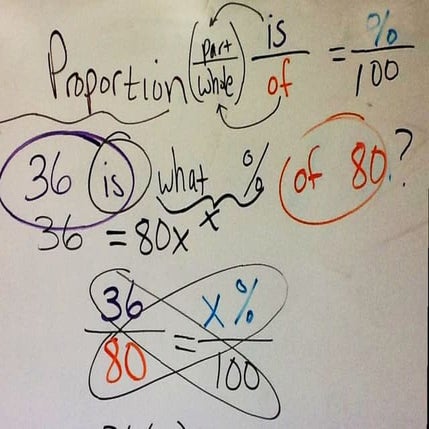 Proportion (part/whole) is/of = %/100
36 is what % of 80.?
x
36 = 80x
36/80 = x%/100